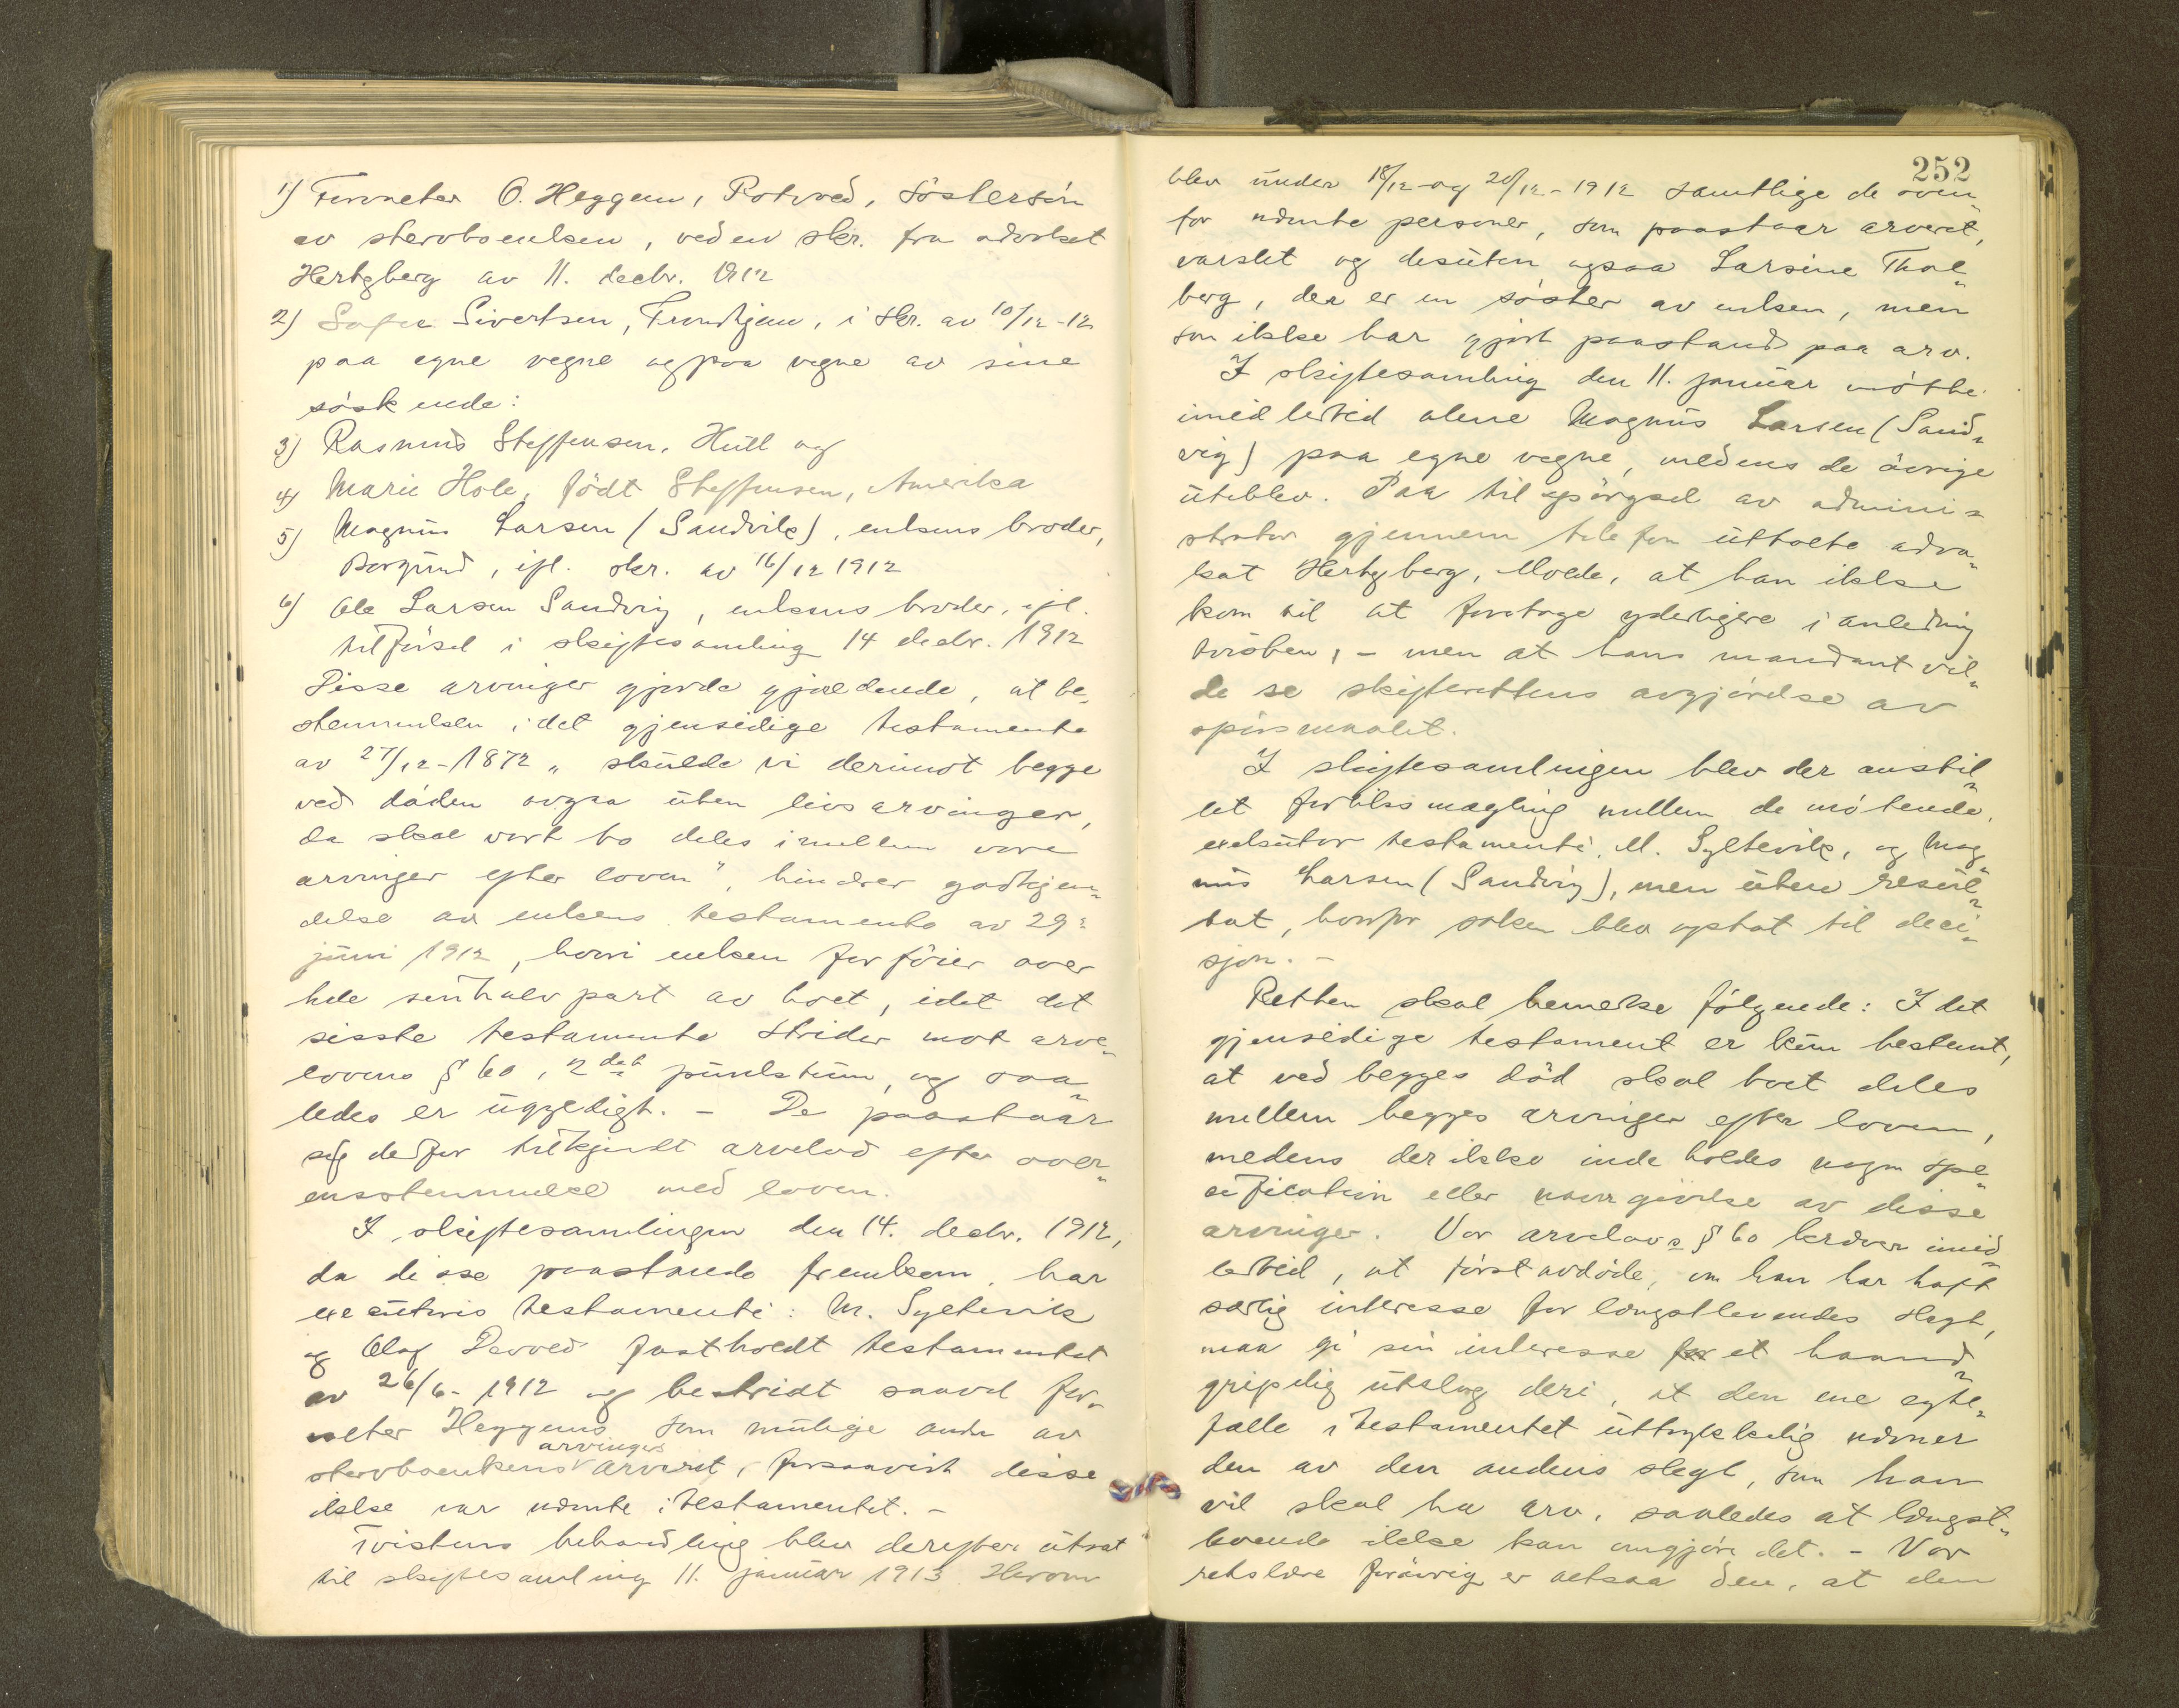 1) Forvalter O. Heggem, Rotvod, søstersøn
av stervboenken, ved en skr. fra advokat
Hertzberg av 11. decbr. 1912
2) Sofie Sivertsen, Trondhjem, i skr. av 10/12-12
paa egne vegne og paa vegne av sine
søskende:
3) Rasmus Steffensen, Hull og
4) Marie Hole, født Steffensen, Amerika
5) Magnus Larsen (Sandvik), enkens broder,
Borgund, ifl. skr. av 16/12 1912
6) Ole Larsen Sandvig, enkens broder, ifl.
tilførsel i skiftesamling 14 decbr. 1912
Disse arvinger gjorde gjældende, at be-
stemmelsen i det gjensidige testamente
av 27/12-1872 „skulde vi derimot begge
ved døden avgaa uten livsarvinger,
da skal vort bo deles imellem vore
arvinger efter loven", hindrer godkjen-
delse av enkens testamente av 29:
juni 1912, hvori enken forføier over
hele sin halvpart av boet, idet det
sisste testamente strider mot arve-
lovens § 60, 2det punktum, og saa-
ledes er ugyldigt. – De paastaar
sig derfor tilkjendt arvelod efter over-
ensstemmelse med loven.
I skiftesamlingen den 14. decbr. 1912,
da disse paastande fremkom, har
executoris testamenti: M. Syltevik
og Olaf Devold fastholdt testamentet
av 26/6-1912 og bestridt saavel for-
valter Heggems som mulige andre av
stervboenkens arvinges arveret, forsaavidt disse
ikke var nævnte i testamentet. –
Tvistens behandling blev derefter utsat
til skiftesamling 11. januar 1913. Herom
252
blev under 18/12 og 20/12-1912 samtlige de oven-
for nævnte personer, som paastaar arveret,
varslet og desuten ogsaa Larsine Thol-
berg, der er en søster av enken, men
som ikke har gjort paastand paa arv.
I skiftesamling den 11. januar møtte
imidlertid alene Magnus Larsen (Sand-
vig) paa egne vegne, medens de øvrige
uteblev. Paa tilspørgsel av admini-
strator gjennem telefon uttalte advo-
kat Hertzberg, Molde, at han ikke
kom til at foretage yderligere i anledning
tvisten, – men at hans mandant vil-
de se skifterettens avgjørelse av
spørsmaalet.
I skiftesamlingen blev der anstil-
let forliksmægling mellem de møtende,
exekutor testamenti, M. Syltevik, og Mag-
nus Larsen (Sandvig), men uten resul-
tat, hvorfor saken blev optat til deci-
sjon. –
Retten skal bemerke følgende: I det
gjensidige testament er kun bestemt,
at ved begges død skal boet deles
mellem begges arvinger efter loven,
medens der ikke inde holdes nogen spe-
cification eller navngivelse av disse
arvinger. Vor arvelovs § 60 kræver imid-
lertid, at førstavdøde, om han har hatt
særlig interesse for længstlevendes slegt,
maa gi sin interesse et haand-
gripelig utslag deri, at den ene egte-
fælle i testamentet uttrykkelig nævner
den av den andens slegt, som han
vil skal ha arv, saaledes at længst-
levende ikke kan omgjøre det. – Vor
retslære forøvrig er altsaa den, at den